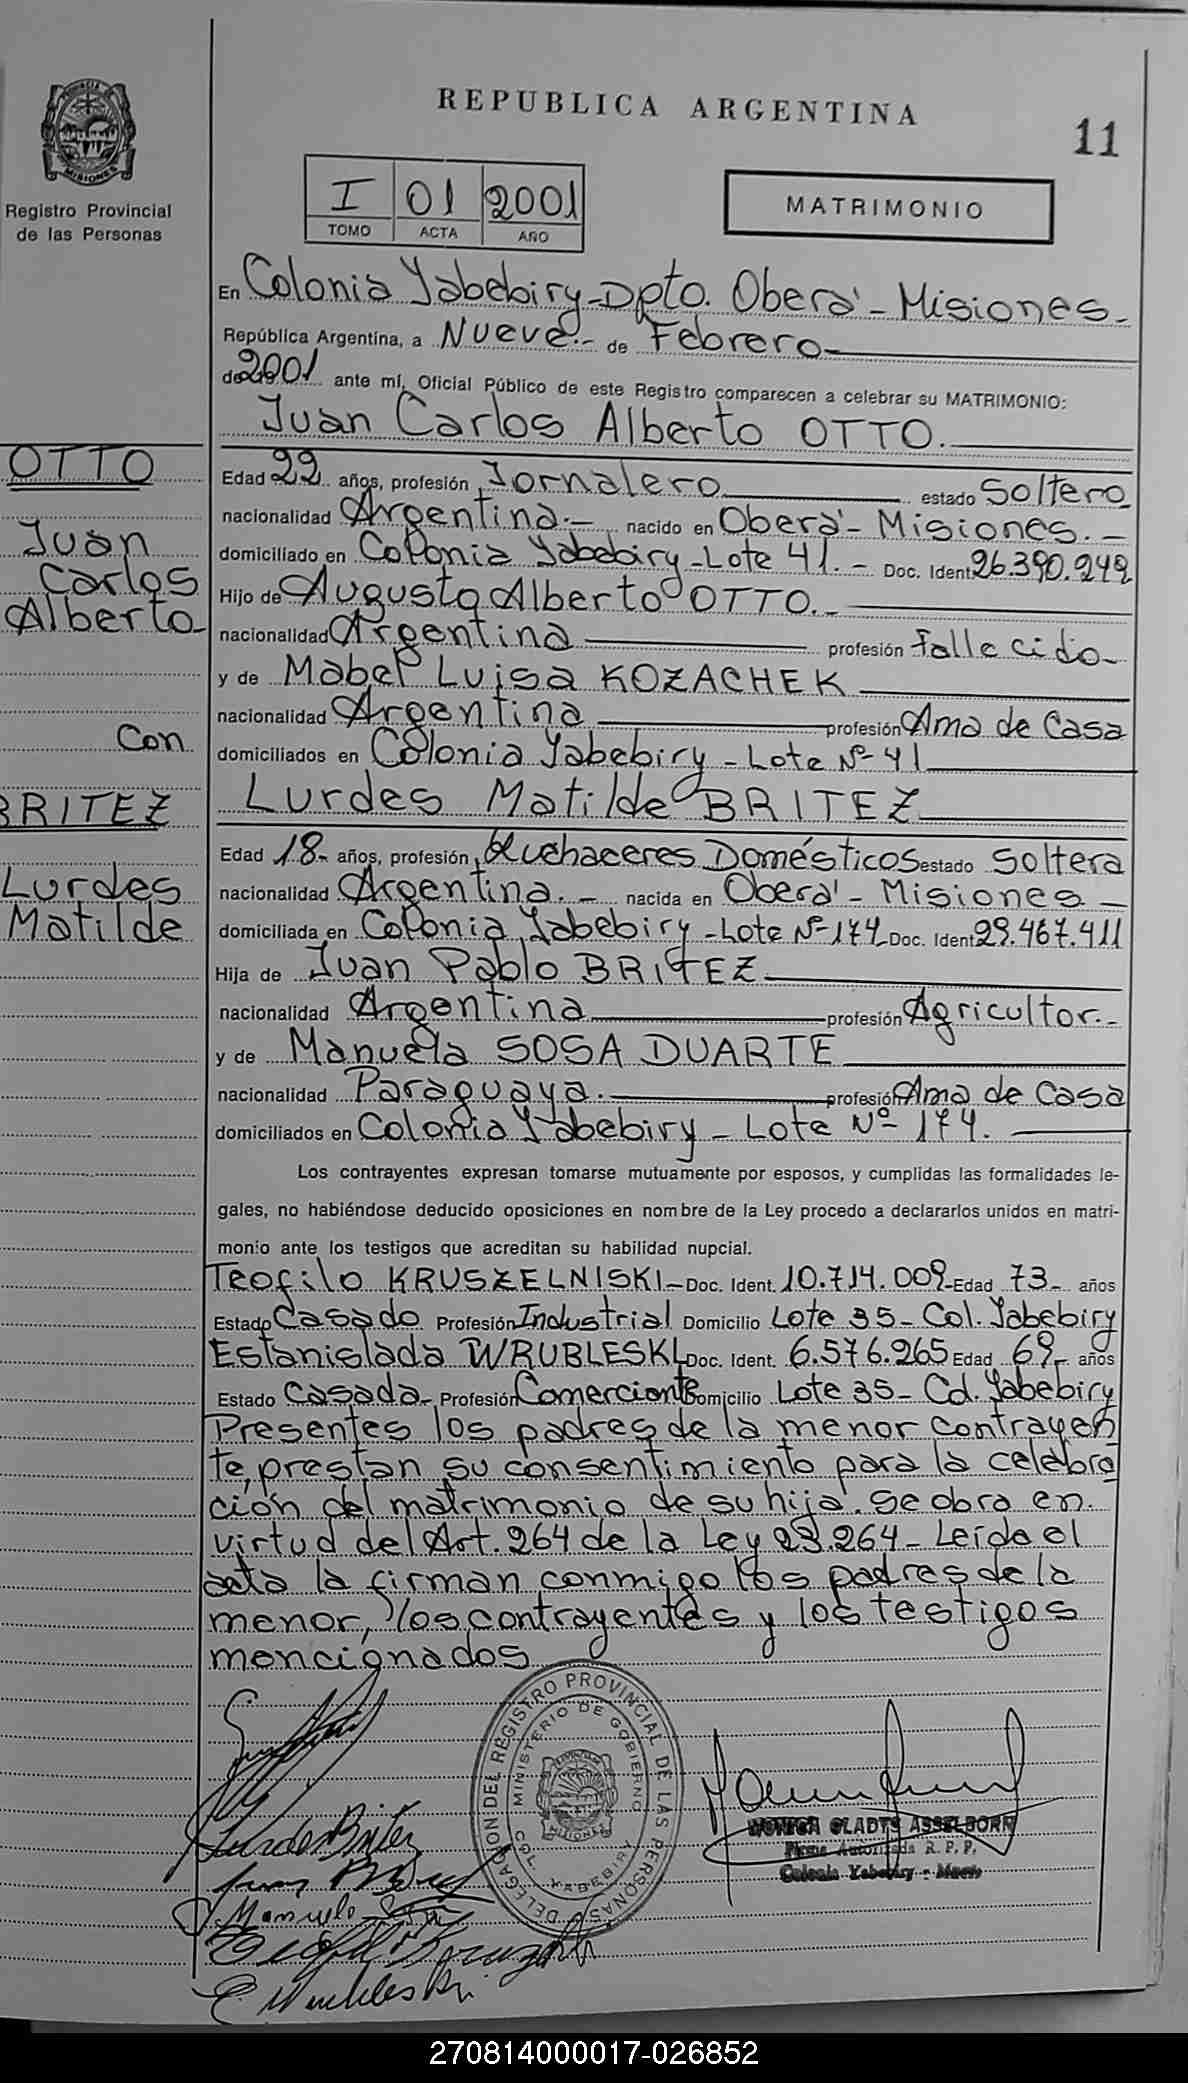 REPUBLICA ARGENTINA
11
PROVINCIA DE
MISIONES
Registro Provincial
de las Personas
I 01 2001
TOMO ACTA AÑO
MATRIMONIO
En Colonia Yabebiry - Dpto. Oberá - Misiones -
República Argentina, a Nueve.- de Febrero
de 2001 ante mí, Oficial Público de este Registro comparecen a celebrar su MATRIMONIO:
Juan Carlos Alberto OTTO.
OTTO
Juan
Carlos
Alberto
Con
BRITEZ
Lurdes
Matilde
Edad 22 años, profesión Jornalero estado Soltero
nacionalidad Argentina.- nacido en Oberá - Misiones.-
domiciliado en Colonia Yabebiry - Lote 41.- Doc. Ident. 26.390.242
Hijo de Augusto Alberto OTTO.
nacionalidad Argentina profesión Fallecido -
y de Mabel Luisa KOZACHEK
nacionalidad Argentina profesión Ama de Casa
domiciliados en Colonia Yabebiry - Lote Nº 41
Lurdes Matilde BRITEZ
Edad 18- años, profesión Quehaceres Domésticos estado Soltera
nacionalidad Argentina.- nacida en Oberá - Misiones -
domiciliada en Colonia Yabebiry - Lote Nº 174 Doc. Ident. 29.467.411
Hija de Juan Pablo BRITEZ
nacionalidad Argentina profesión Agricultor.-
y de Manuela SOSA DUARTE
nacionalidad Paraguaya. profesión Ama de Casa
domiciliados en Colonia Yabebiry - Lote Nº 174.
Los contrayentes expresan tomarse mutuamente por esposos, y cumplidas las formalidades le-
gales, no habiéndose deducido oposiciones en nombre de la Ley procedo a declararlos unidos en matri-
monio ante los testigos que acreditan su habilidad nupcial.
Teofilo KRUSZELNISKI - Doc. Ident. 10.714.009 - Edad 73 - años
Estado Casado Profesión Industrial Domicilio Lote 35 - Col. Yabebiry
Estanislada WRUBLESKI Doc. Ident. 6.576.265 Edad 69 - años
Estado Casada - Profesión Comerciante Domicilio Lote 35 - Col. Yabebiry
Presentes los padres de la menor contrayen
te, prestan su consentimiento para la celebra
ción del matrimonio de su hija. Se obra en
virtud del Art. 264 de la Ley 23.264 - Leída el
acta la firman conmigo los padres de la
menor, los contrayentes y los testigos
mencionados
DELEGACION DEL REGISTRO PROVINCIAL DE LAS PERSONAS
MINISTERIO DE GOBIERNO
COL. YABEBIRY
MISIONES
Lurdes Britez
MONICA GLADYS ASSELBORN
Firma Autorizada R. P. P.
Colonia Yabebiry - Mnes
Manuela
E. Wrubleski
270814000017-026852